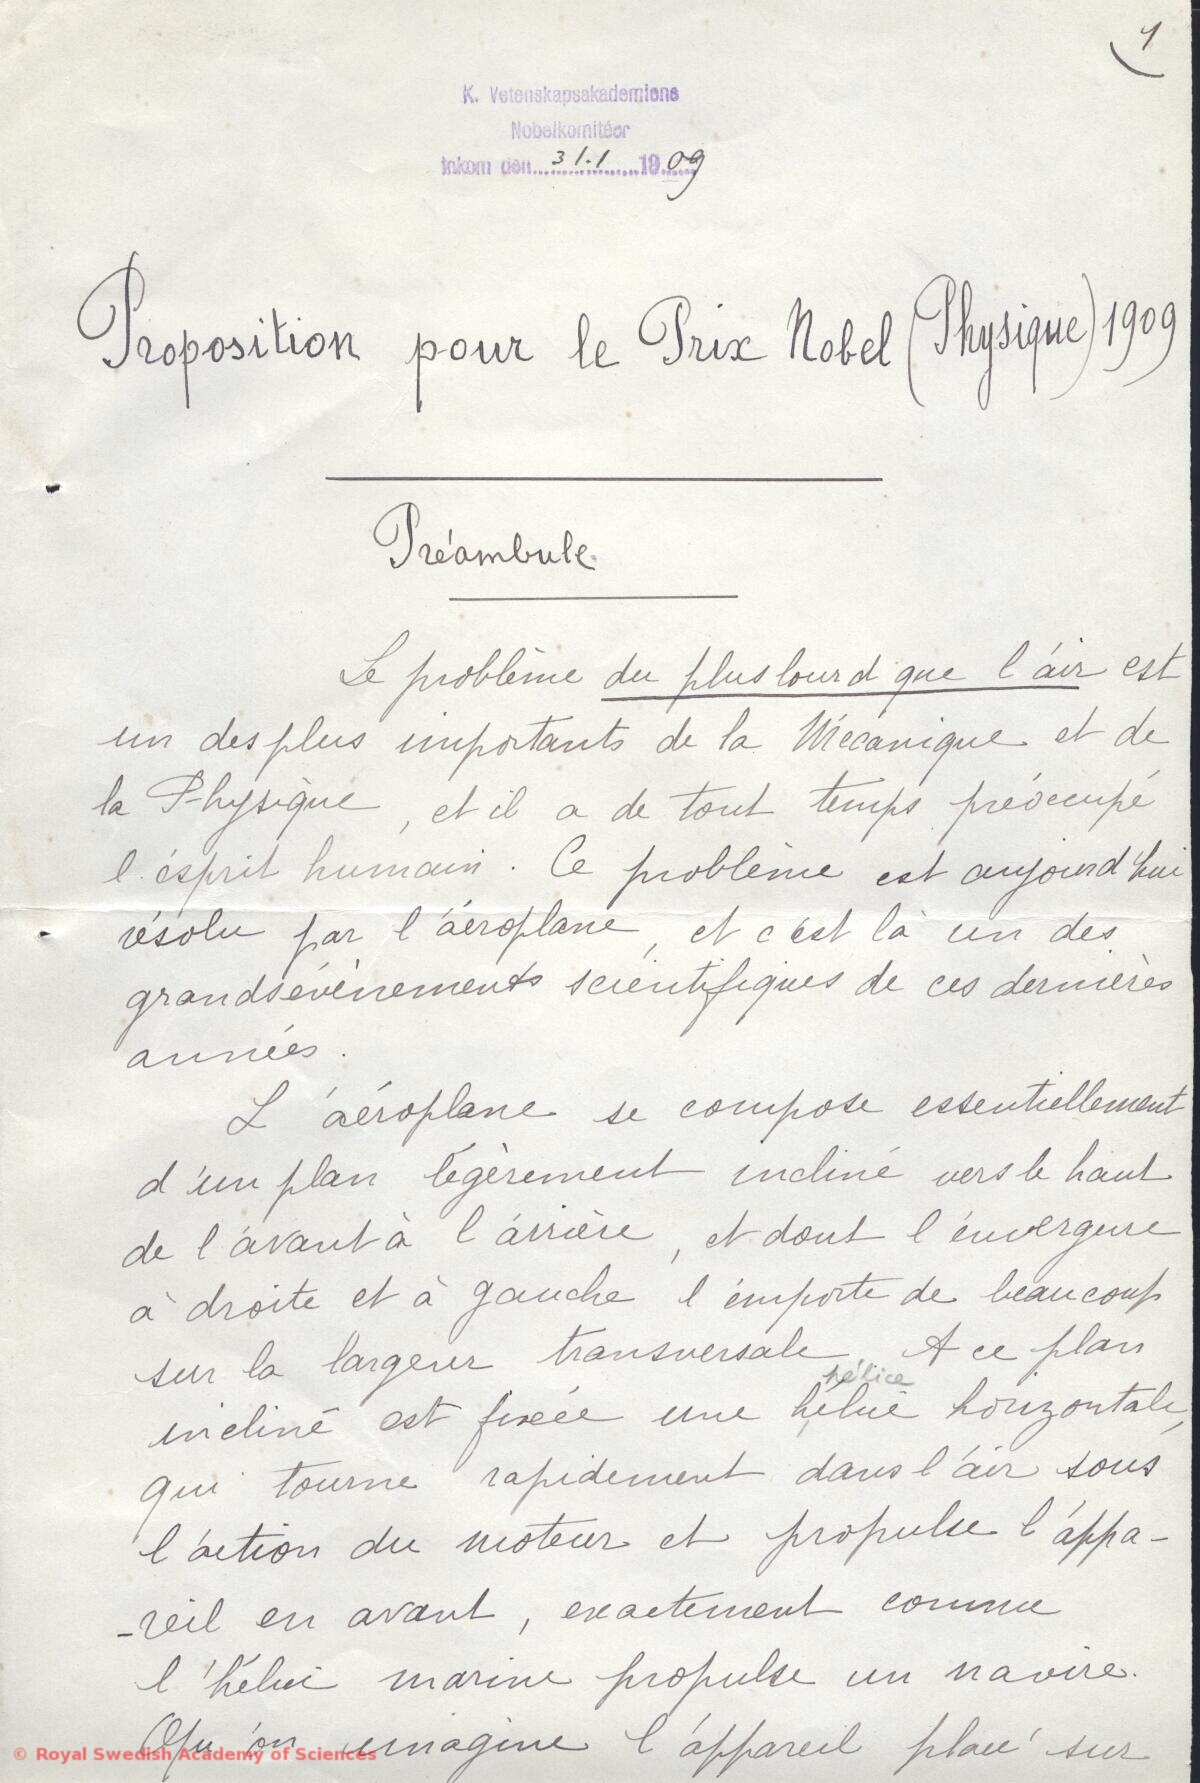 1
K. Vetenskapsakademiens
Nobelkomitéer
Inkom den 31.1 1909
Proposition pour le Prix Nobel (Physique) 1909
Préambule.
Le problème du plus lourd que l'air est
un des plus importants de la Mécanique et de
la Physique, et il a de tout temps préoccupé
l'esprit humain. Ce problème est aujourd'hui
résolu par l'aéroplane, et c'est là un des
grands évènements scientifiques de ces dernières
années.
L'aéroplane se compose essentiellement
d'un plan légèrement incliné vers le haut
de l'avant à l'arrière, et dont l'envergure
à droite et à gauche l'emporte de beaucoup
sur la largeur transversale. A ce plan
hélice
incliné est fixée une hélice horizontale,
qui tourne rapidement dans l'air sous
l'action du moteur et propulse l'appa-
-reil en avant, exactement comme
l'hélice marine propulse un navire.
Qu'on imagine l'appareil placé sur
© Royal Swedish Academy of Sciences